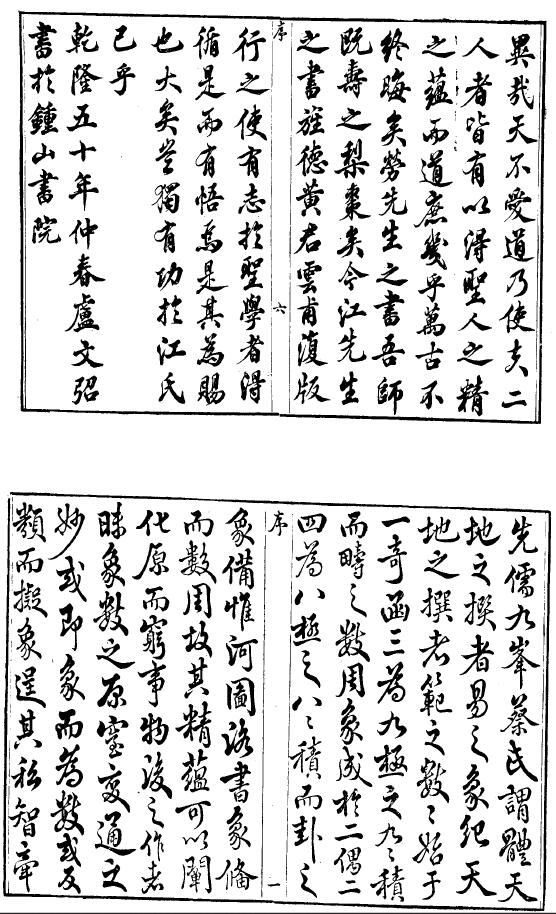 異哉天不愛道乃使夫二
人者皆有以得聖人之精
之蘊而道庶幾乎萬古不
終晦矣勞先生之書吾師
既壽之梨棗矣今江先生
之書旌德黃君雲甫復版
序
六
行之使有志於聖學者得
循是而有悟焉是其為賜
也大矣豈獨有功於江氏
已乎
乾隆五十年仲春盧文弨
書於鍾山書院
先儒九峯蔡氏謂體天
地之撰者易之象紀天
地之撰者範之數〻始于
一奇函三為九極之九〻積
而疇之數周象成於二偶二
四為八極之八〻積而卦之
序
一
象備惟河圖洛書象備
而數周故其精蘊可以闡
化原而窮事物後之作者
昧象數之原窒變通之
妙或即象而為數或反
數而擬象逞其私智牽